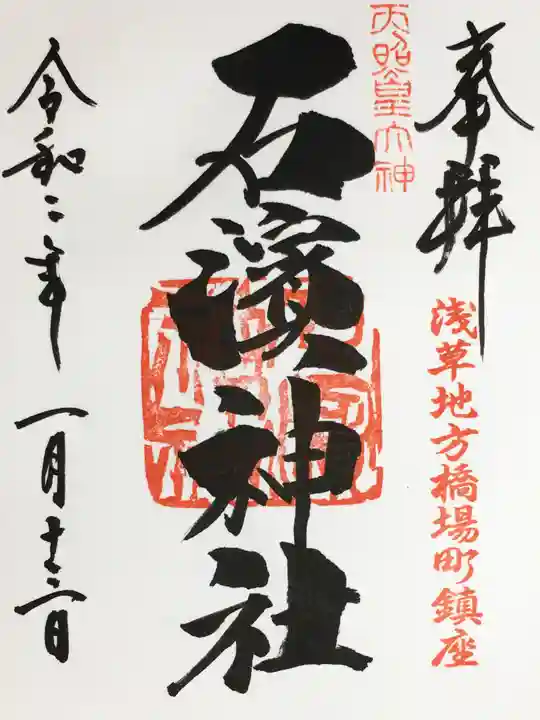 奉拝
浅草地方橋場町鎮座
天照皇大神
石濱神社
令和二年 一月十三日